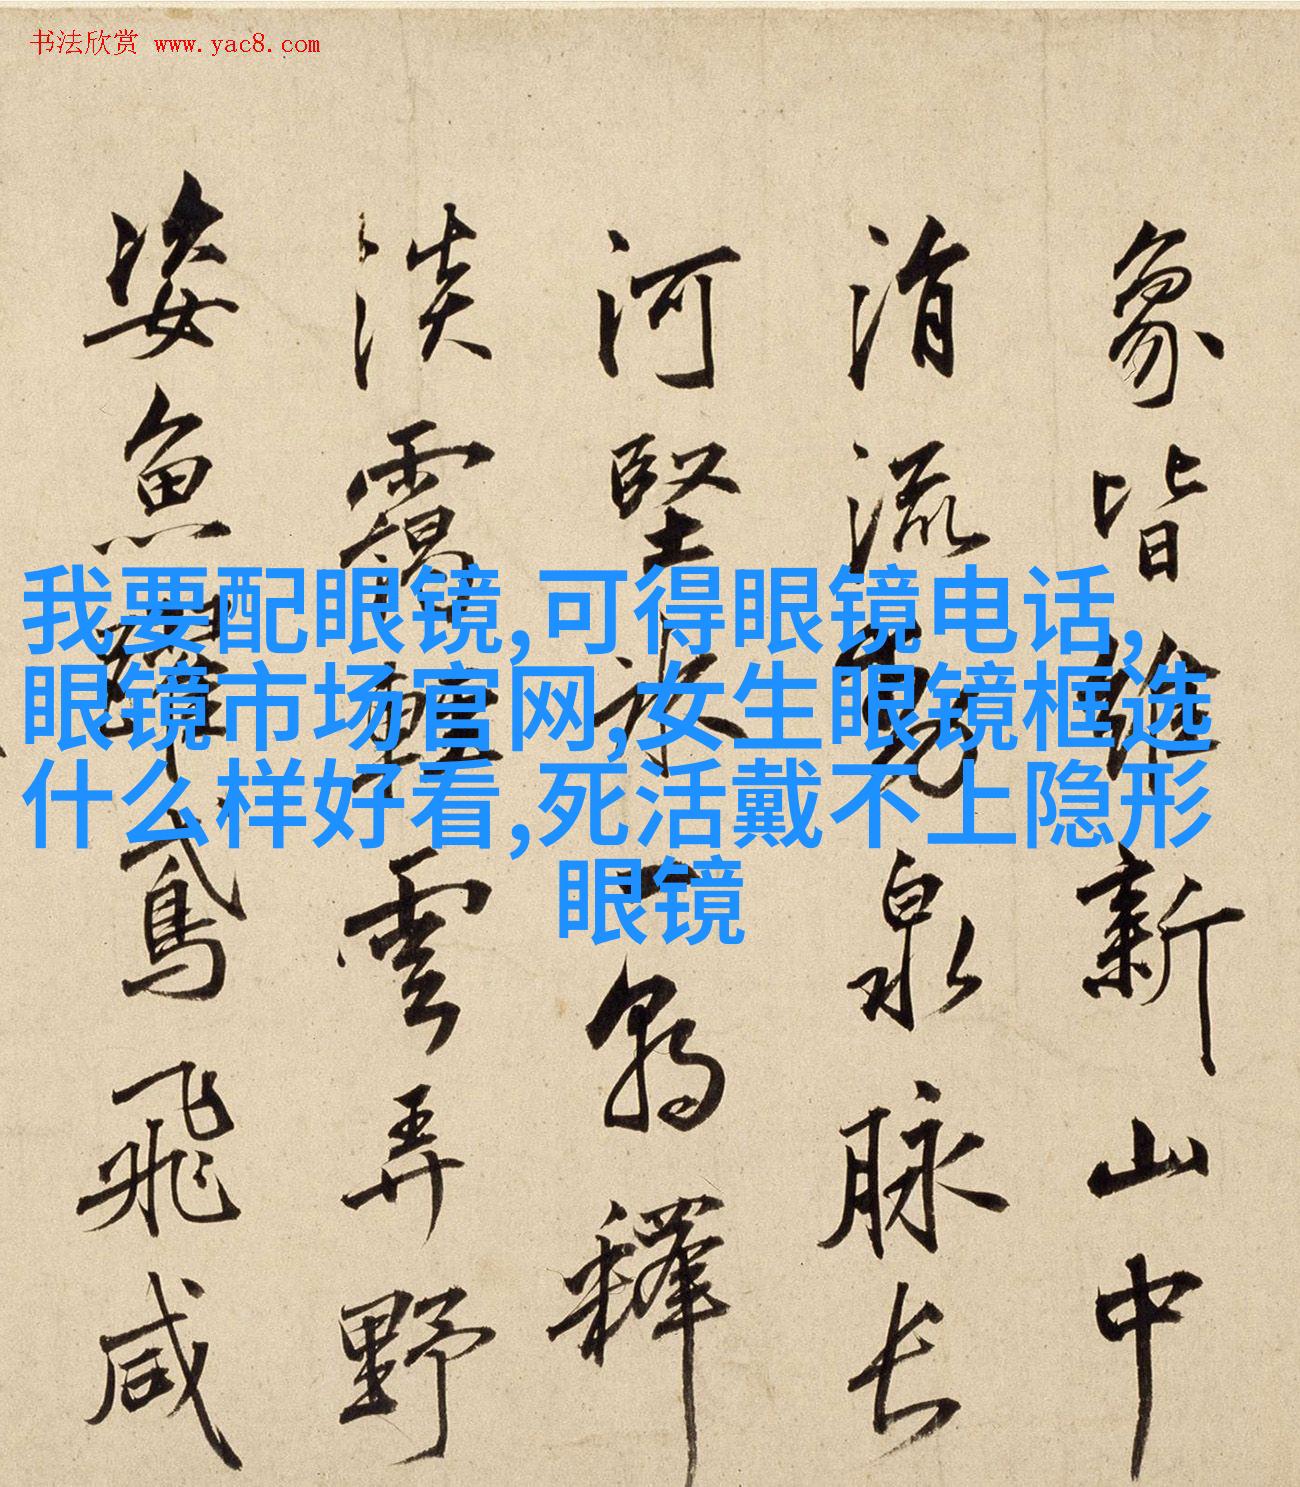 书法欣赏 www.yac8.com
象皆維新山中
涓流泉脉长
河堅冰一朝釋
淡靄輕雲弄野
姿魚躍鳶飛咸
我要配眼镜,可得眼镜电话,
眼镜市场官网,女生眼镜框选
什么样好看,死活戴不上隐形
眼镜